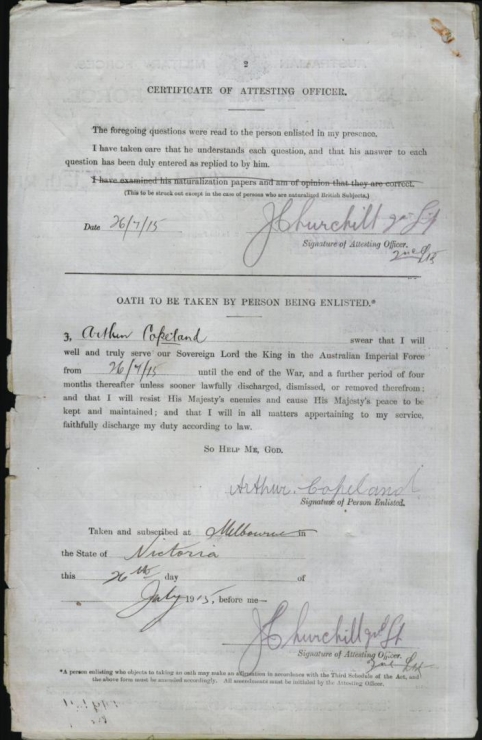 2
CERTIFICATE OF ATTESTING OFFICER.
The foregoing questions were read to the person enlisted in my presence.
I have taken care that he understands each question, and that his answer to each
question has been duly entered as replied to by him.
I have examined his naturalization papers and am of opinion that they are correct.
(This to be struck out except in the case of persons who are naturalized British Subjects.)
Date 26/7/15 J Churchill 2nd Lt
Signature of Attesting Officer.
2nd Lt
OATH TO BE TAKEN BY PERSON BEING ENLISTED.*
I, Arthur Copeland swear that I will
well and truly serve our Sovereign Lord the King in the Australian Imperial Force
from 26/7/15 until the end of the War, and a further period of four
months thereafter unless sooner lawfully discharged, dismissed, or removed therefrom;
and that I will resist His Majesty's enemies and cause His Majesty's peace to be
kept and maintained; and that I will in all matters appertaining to my service,
faithfully discharge my duty according to law.
SO HELP ME, GOD.
Arthur. Copeland
Signature of Person Enlisted.
Taken and subscribed at Melbourne in
the State of Victoria
this 26th day of
July 1915, before me—
J Churchill 2nd Lt
Signature of Attesting Officer.
2nd Lt
*A person enlisting who objects to taking an oath may make an affirmation in accordance with the Third Schedule of the Act, and
the above form must be amended accordingly. All amendments must be initialed by the Attesting Officer.